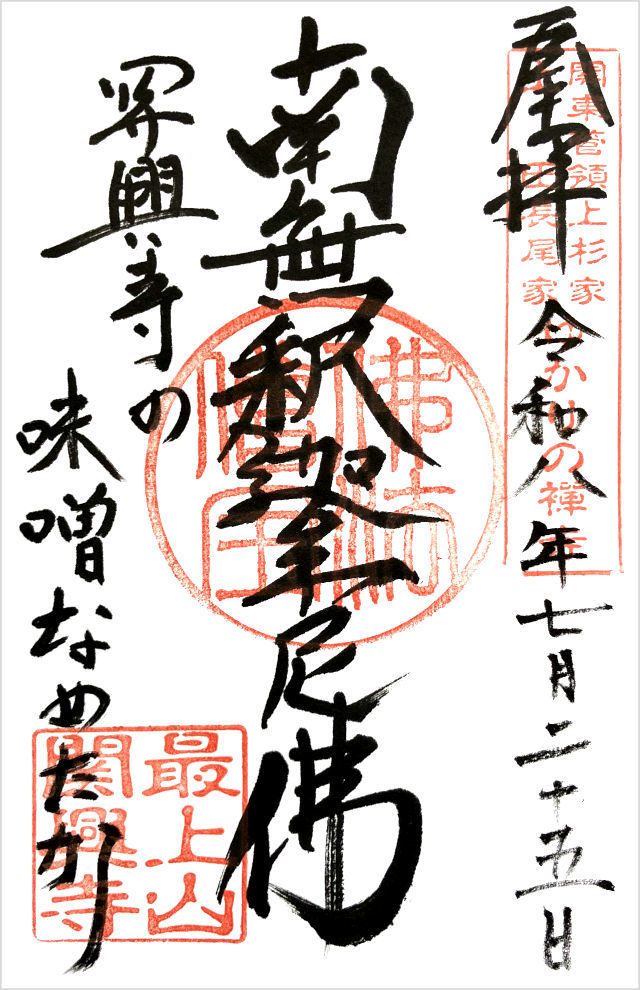 奉拝 令和八年七月二十五日
関東管領上杉家
長尾家ゆかりの禅寺
南無釈迦牟尼佛
佛法僧宝
関興寺の
味噌なめたか
最上山
関興寺